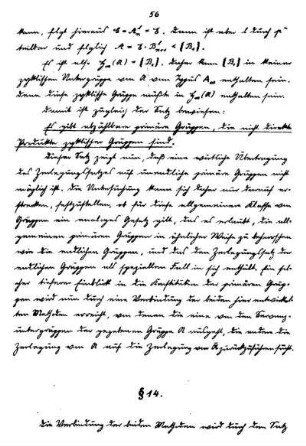 56
kann, folgt hieraus
teilbar und folglich
Es ist also Hₘ(A) = {Dₙ}. Daher kann {Dₙ} in keiner
zyklischen Untergruppe von A vom Typus Aₘ enthalten sein.
Denn diese zyklische Gruppe müßte in Hₘ(A) enthalten sein.
Damit ist zugleich der Satz bewiesen:
Es gibt abzählbare primäre Gruppen, die nicht direkte
Produkte zyklischer Gruppen sind.
Dieser Satz zeigt nun, daß eine wörtliche Übertragung
des Zerlegungssatzes auf unendliche primäre Gruppen nicht
möglich ist. Die Untersuchung kann sich daher nur darauf er-
strecken, festzustellen, ob für diese allgemeineren Klasse von
Gruppen ein analoges Gesetz gilt, das es erlaubt, die all-
gemeinen primären Gruppen in ähnlicher Weise zu beherrschen
wie die endlichen Gruppen, und das den Zerlegungssatz der
endlichen Gruppen als speziellen Fall in sich enthält. Ein sol-
cher tieferer Einblick in die Konstitution der primären Grup-
pen wird nun durch eine Verbindung der beiden hier entwickel-
ten Methoden erreicht, von denen die eine von den
untergruppen der gegebenen Gruppe A ausgeht, die andere die
Zerlegung von A auf die Zerlegung von A zurückzuführen sucht.
§ 14.
Die Verbindung der beiden Methoden wird durch den Satz